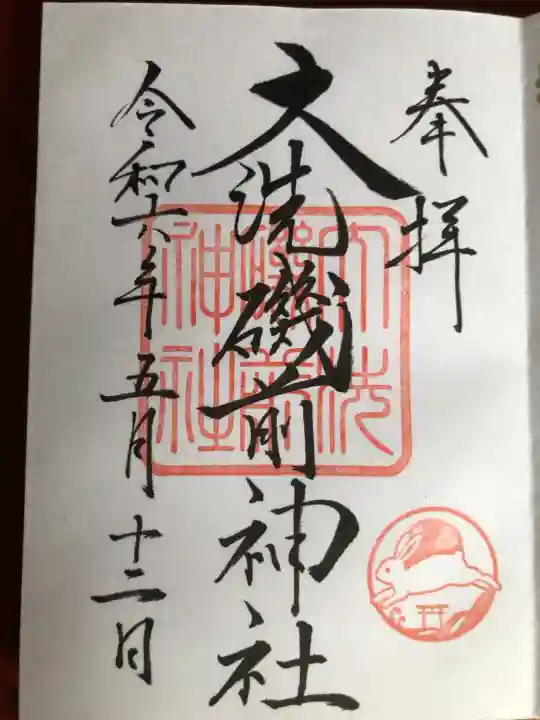 奉拝
大洗磯前神社
大洗磯前神社
令和六年五月十二日